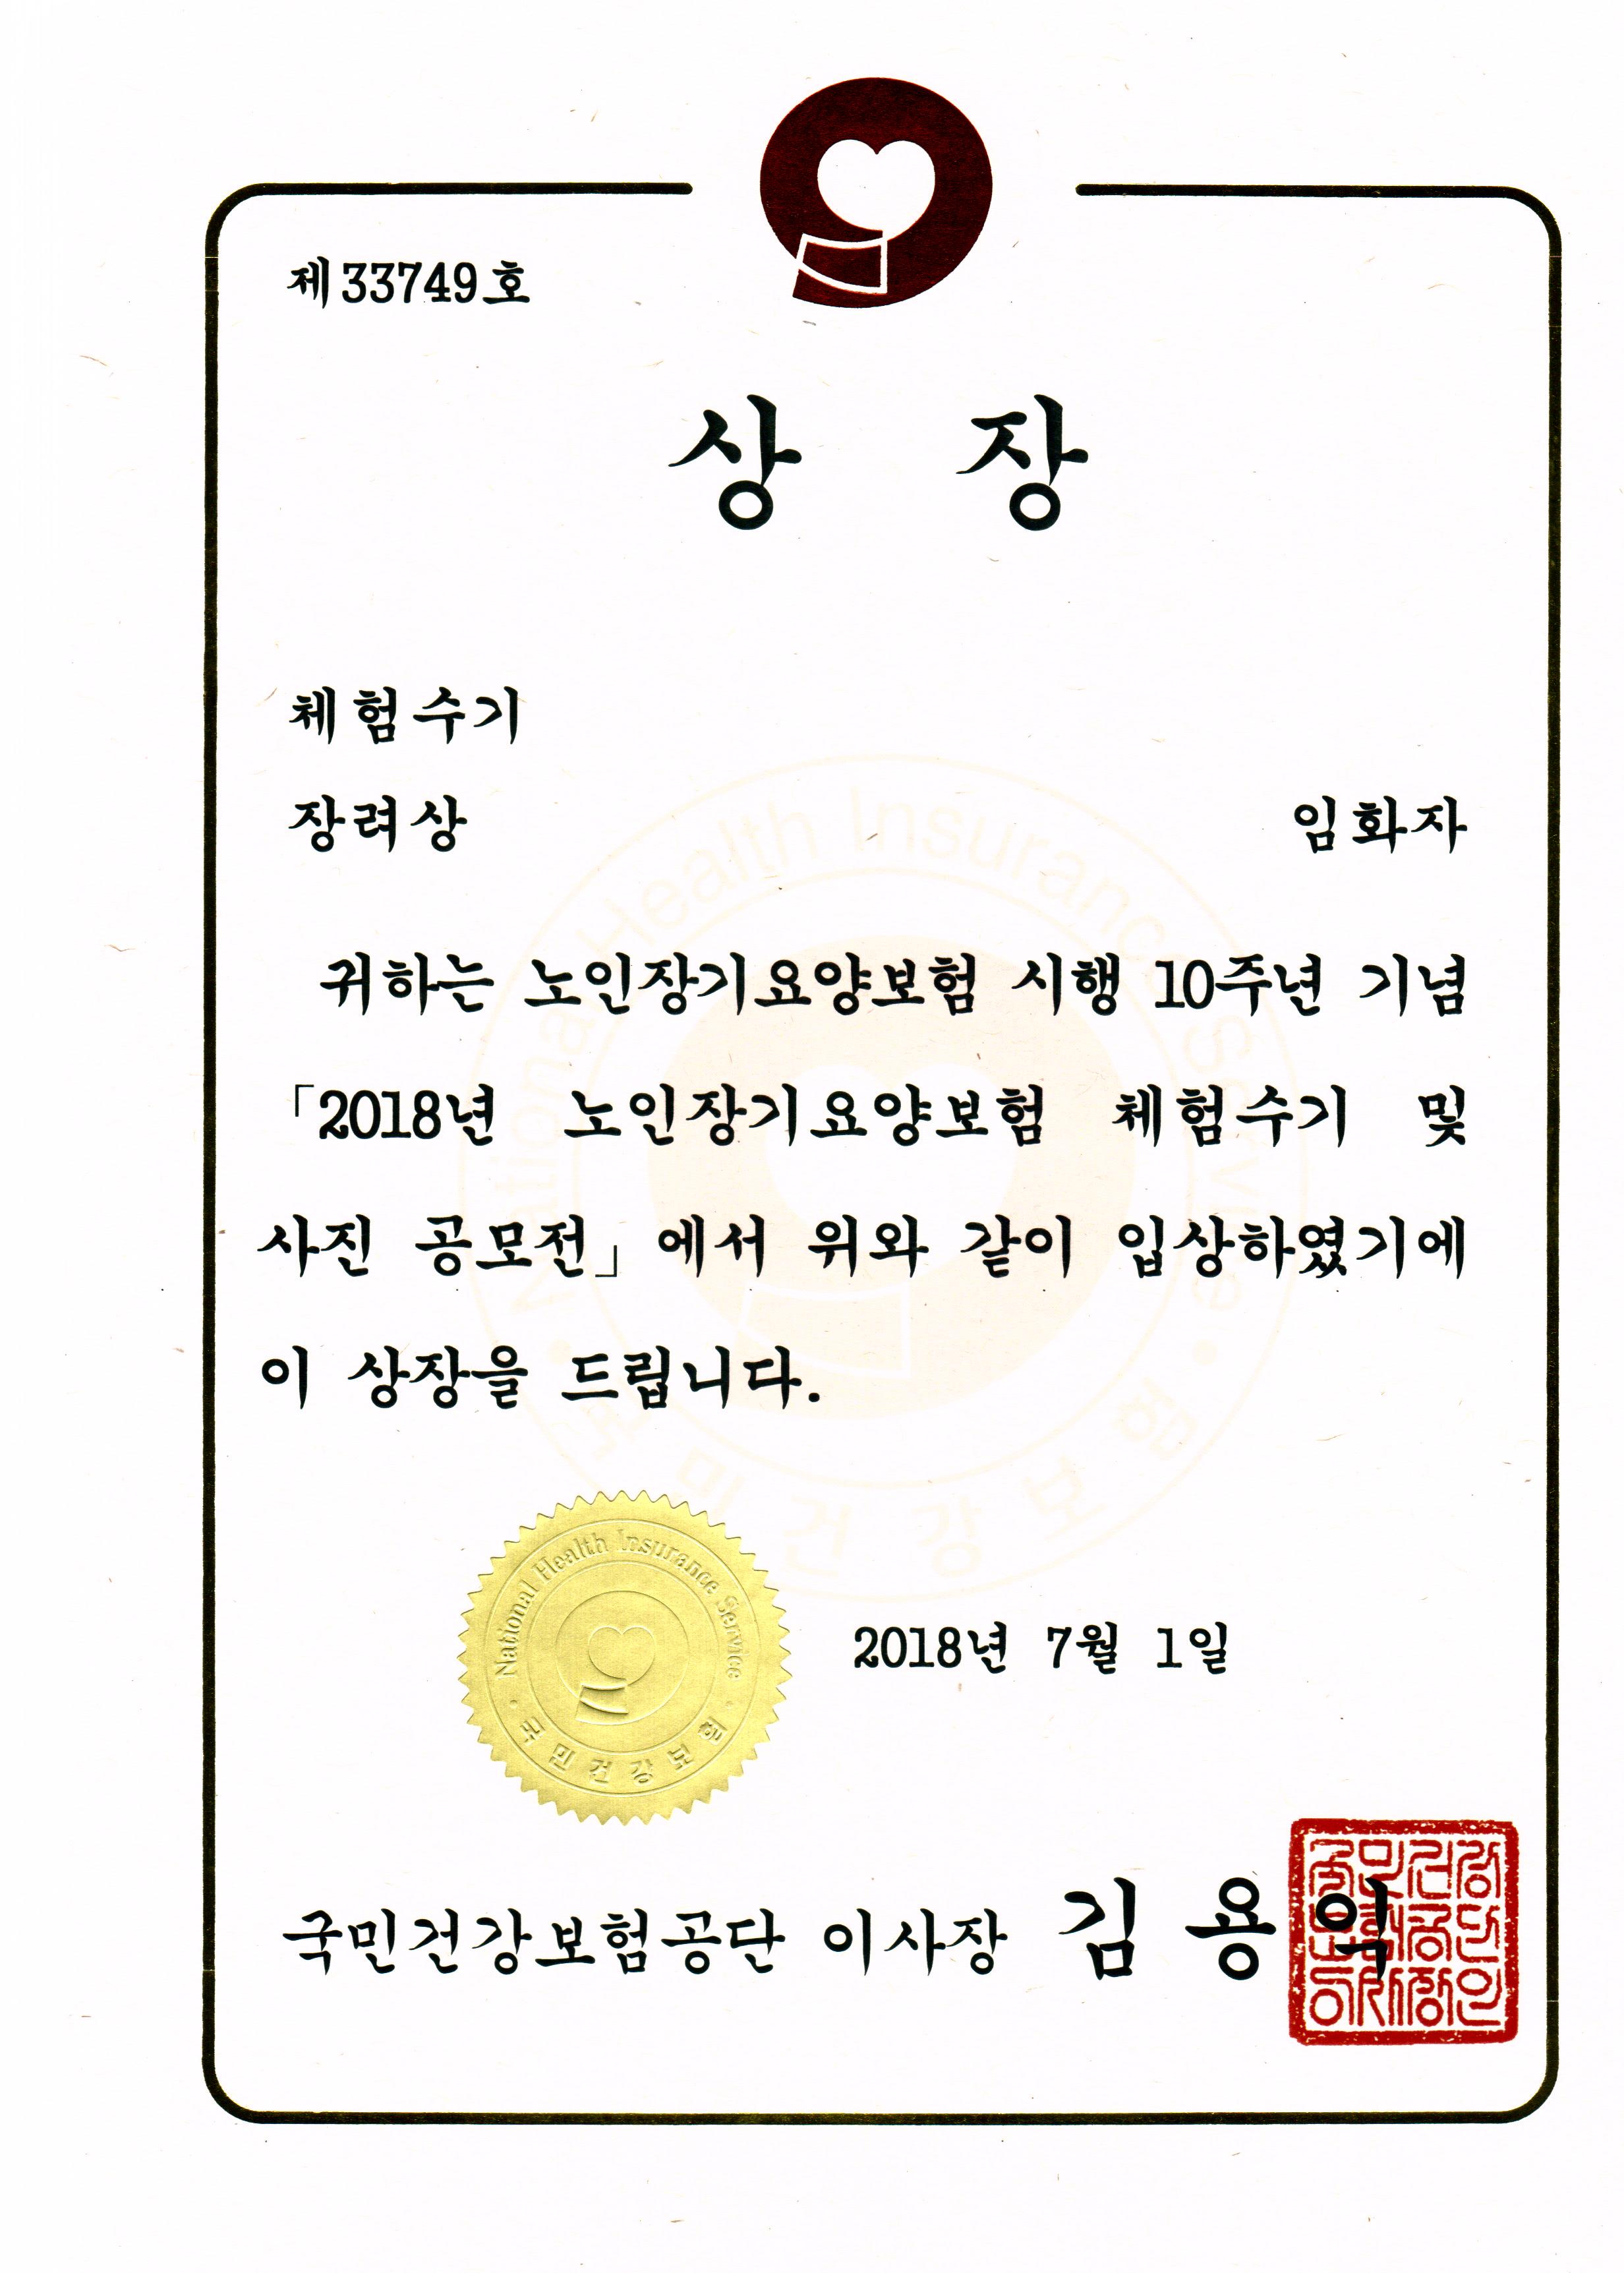 제33749호
상 장
체험수기
장려상 임화자
귀하는 노인장기요양보험 시행 10주년 기념
「2018년 노인장기요양보험 체험수기 및
사진 공모전」에서 위와 같이 입상하였기에
이 상장을 드립니다.
National Health Insurance Service
국민건강보험
National Health Insurance Service
국민건강보험
2018년 7월 1일
국민건강보험공단 이사장 김 용 익